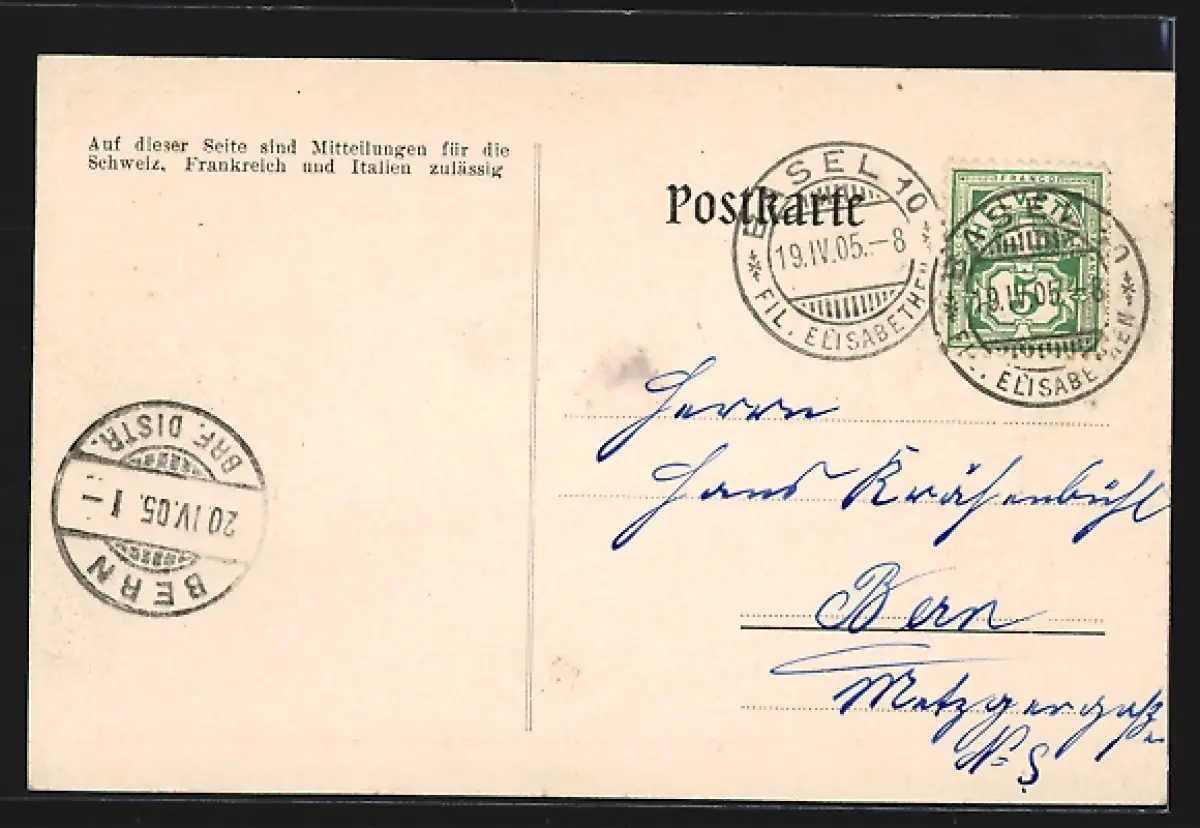 Auf dieser Seite sind Mitteilungen für die
Schweiz, Frankreich und Italien zulässig
Postkarte
BASEL 10
19.IV.05.–8
FIL. ELISABETHEN
FRANCO
HELVETIA
5
BASEL 10
19.IV.05.–8
FIL. ELISABETHEN
BRF. DISTR.
20 IV.05. I –
BERN
Herrn
Hans Krähenbühl
Bern
Metzgergaße
No